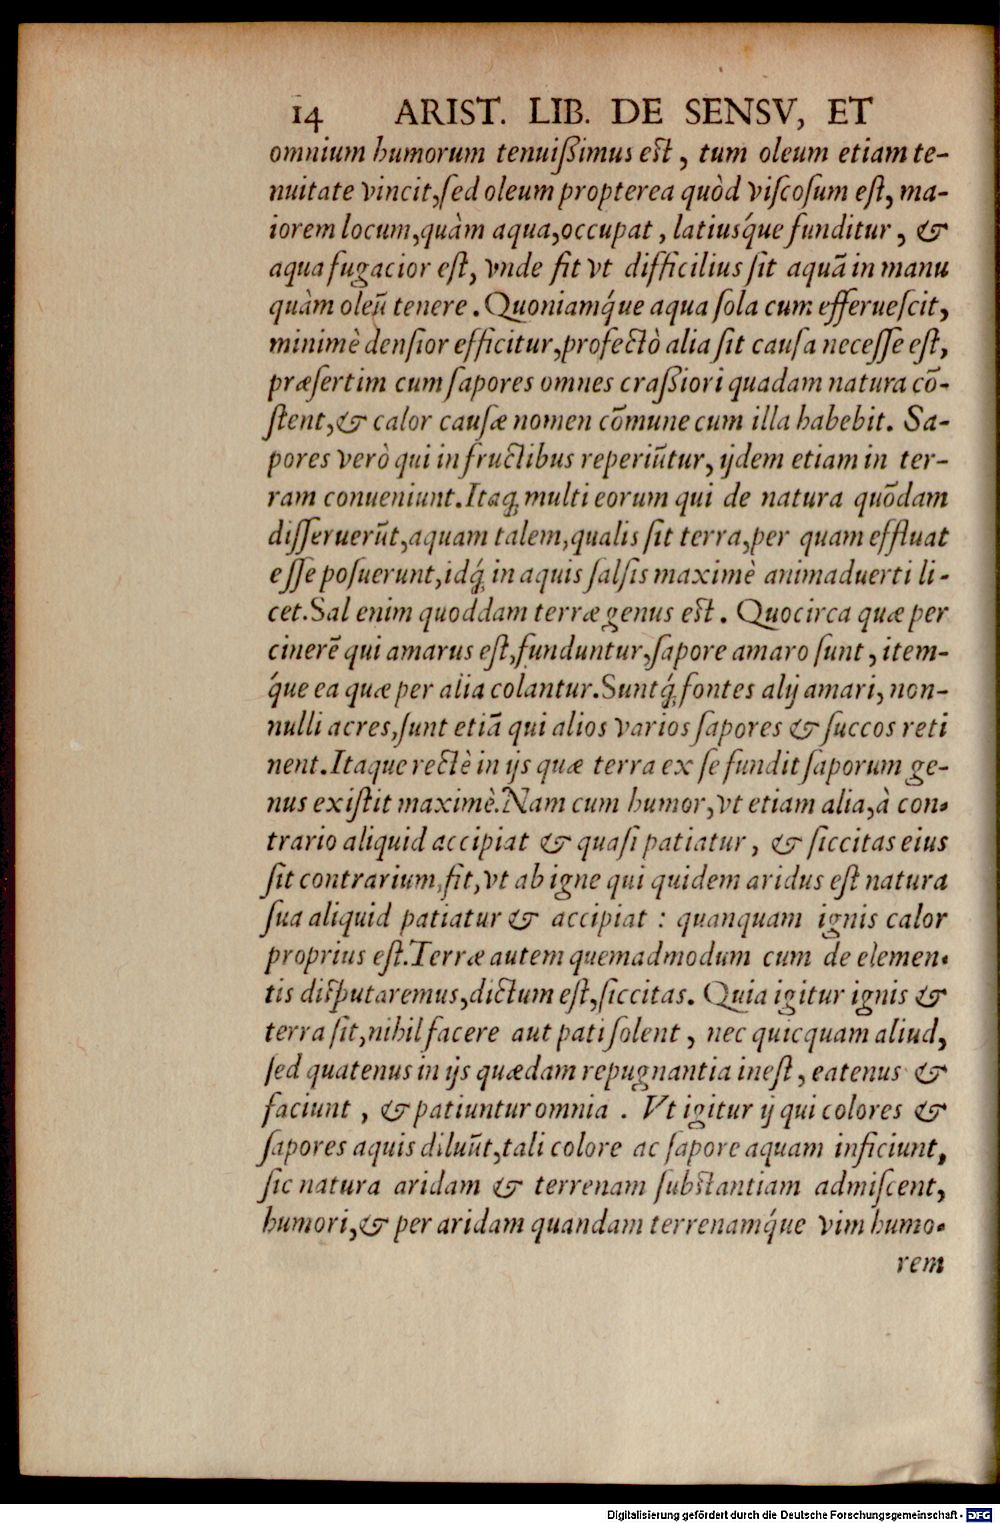 14 ARIST. LIB. DE SENSV, ET
omnium humorum tenuißimus est, tum oleum etiam te-
nuitate vincit, ſed oleum propterea quòd viſcoſum eſt, ma-
iorem locum, quàm aqua, occupat, latiusq́ue funditur, &
aqua fugacior eſt, vnde fit vt difficilius ſit aquā in manu
quàm oleū tenere. Quoniamq́ue aqua ſola cum efferueſcit,
minimè denſior efficitur, profectò alia ſit cauſa neceſſe eſt,
præſertim cum ſapores omnes craßiori quadam natura cō-
ſtent, & calor cauſæ nomen cōmune cum illa habebit. Sa-
pores verò qui in fructibus reperiūtur, ijdem etiam in ter-
ram conueniunt. Itaq; multi eorum qui de natura quōdam
diſſeruerūt, aquam talem, qualis ſit terra, per quam effluat
eſſe poſuerunt, idq́; in aquis ſalſis maximè animaduerti li-
cet. Sal enim quoddam terræ genus est. Quocirca quæ per
cinerē qui amarus eſt, funduntur, ſapore amaro ſunt, item-
q́ue ea quæ per alia colantur. Suntq́; fontes alij amari, non-
nulli acres, ſunt etiā qui alios varios ſapores & ſuccos reti
nent. Itaque rectè in ijs quæ terra ex ſe fundit ſaporum ge-
nus exiſtit maximè. Nam cum humor, vt etiam alia, à con-
trario aliquid accipiat & quaſi patiatur, & ſiccitas eius
ſit contrarium, fit, vt ab igne qui quidem aridus eſt natura
ſua aliquid patiatur & accipiat : quanquam ignis calor
proprius eſt. Terræ autem quemadmodum cum de elemen-
tis diſputaremus, dictum eſt, ſiccitas. Quia igitur ignis &
terra ſit, nihil facere aut pati ſolent, nec quicquam aliud,
ſed quatenus in ijs quædam repugnantia ineſt, eatenus &
faciunt, & patiuntur omnia. Vt igitur ij qui colores &
ſapores aquis diluūt, tali colore ac ſapore aquam inficiunt,
ſic natura aridam & terrenam ſubstantiam admiſcent,
humori, & per aridam quandam terrenamq́ue vim humo-
rem
Digitalisierung gefördert durch die Deutsche Forschungsgemeinschaft - DFG